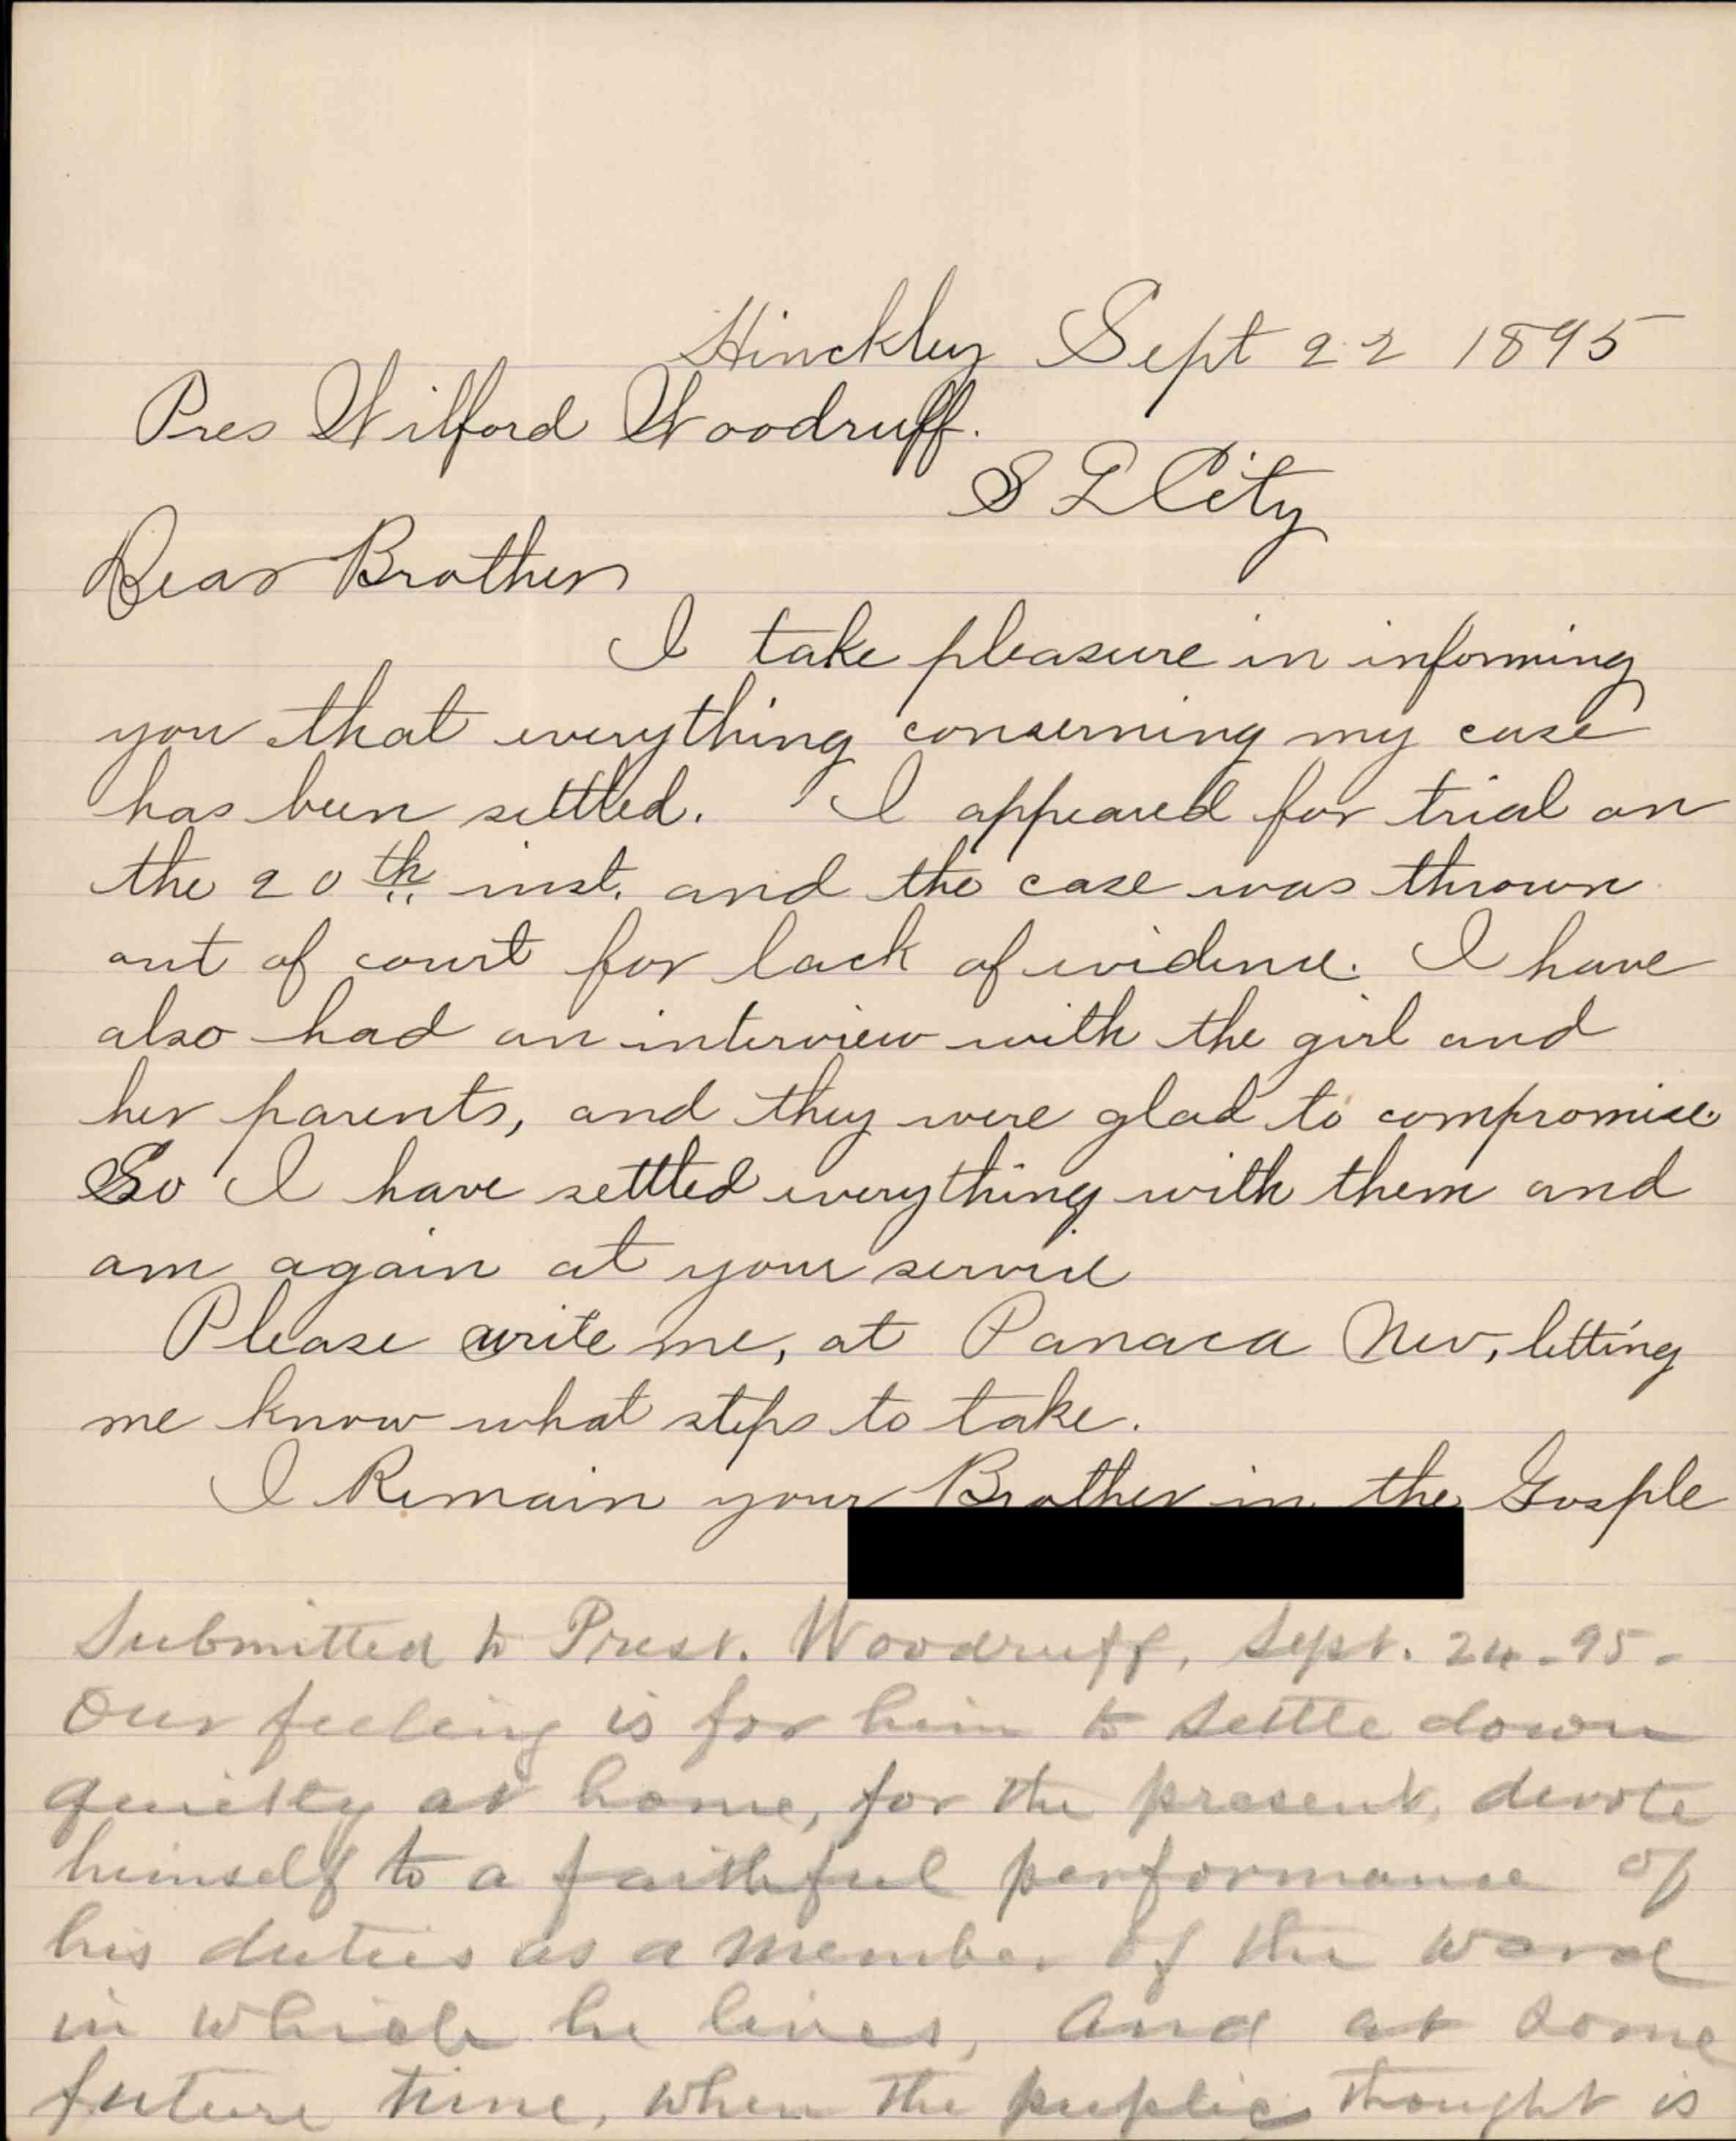 Hinckley Sept 22 1895
Pres Wilford Woodruff.
S L City
Dear Brother
I take pleasure in informing
you that everything conserning my case
has been settled. I appeared for trial on
the 20th inst. and the case was thrown
out of court for lack of evidence. I have
also had an interview with the girl and
her parents, and they were glad to compromise.
So I have setttled everything with them and
am again at your service
Please write me, at Panaca Nev, letting
me know what steps to take.
I Remain your Brother in the Gosple
Submitted to Prest. Woodruff, Sept. 24-95-
Our feeling is for him to settle down
quietly at home, for the present, devote
himself to a faithful performance of
his duties as a member of the ward
in which he lives, and at some
future time, when the puplic thought is